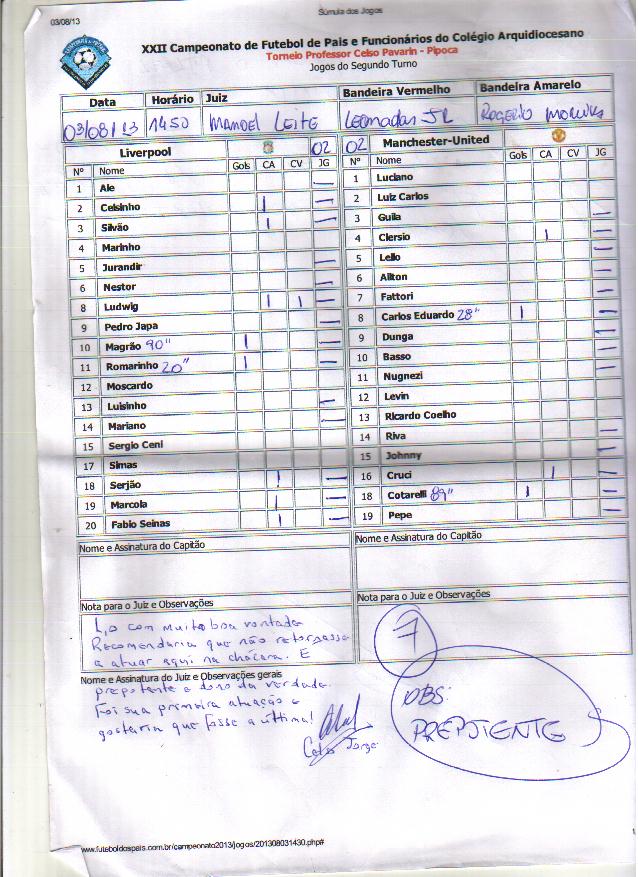 03/08/13
Súmula dos Jogos
XXII Campeonato de Futebol de Pais e Funcionários do Colégio Arquidiocesano
Torneio Professor Celso Pavarin - Pipoca
Jogos do Segundo Turno
Data Horário Juiz Bandeira Vermelho Bandeira Amarelo
03/08/13 1450 MANOEL LEITE Leonadas JR ROGERIO
Liverpool 02 02 Manchester-United
Nº Nome Gols CA CV JG Nº Nome Gols CA CV JG
1 Ale 1 Luciano
2 Celsinho 2 Luiz Carlos
3 Silvão 3 Guila
4 Marinho 4 Clersio
5 Jurandir 5 Lello
6 Nestor 6 Ailton
8 Ludwig 7 Fattori
9 Pedro Japa 8 Carlos Eduardo 28"
10 Magrão 90" 9 Dunga
11 Romarinho 20" 10 Basso
12 Moscardo 11 Nugnezi
13 Luisinho 12 Levin
14 Mariano 13 Ricardo Coelho
15 Sergio Ceni 14 Riva
17 Simas 15 Johnny
18 Serjão 16 Cruci
19 Marcola 18 Cotarelli 89"
20 Fabio Seinas 19 Pepe
Nome e Assinatura do Capitão Nome e Assinatura do Capitão
Nota para o Juiz e Observações Nota para o Juiz e Observações
1,0 com muita boa vontade 7
Recomendaria que não retornasse
a atuar aqui na chácara. É
Nome e Assinatura do Juiz e Observações gerais
prepotente e dono da verdade. OBS:
Foi sua primeira atuação e PREPOTENTE
gostaria que fosse a última!
Celso Jorge
www.futeboldospais.com.br/campeonato2013/jogos/201308031430.php#